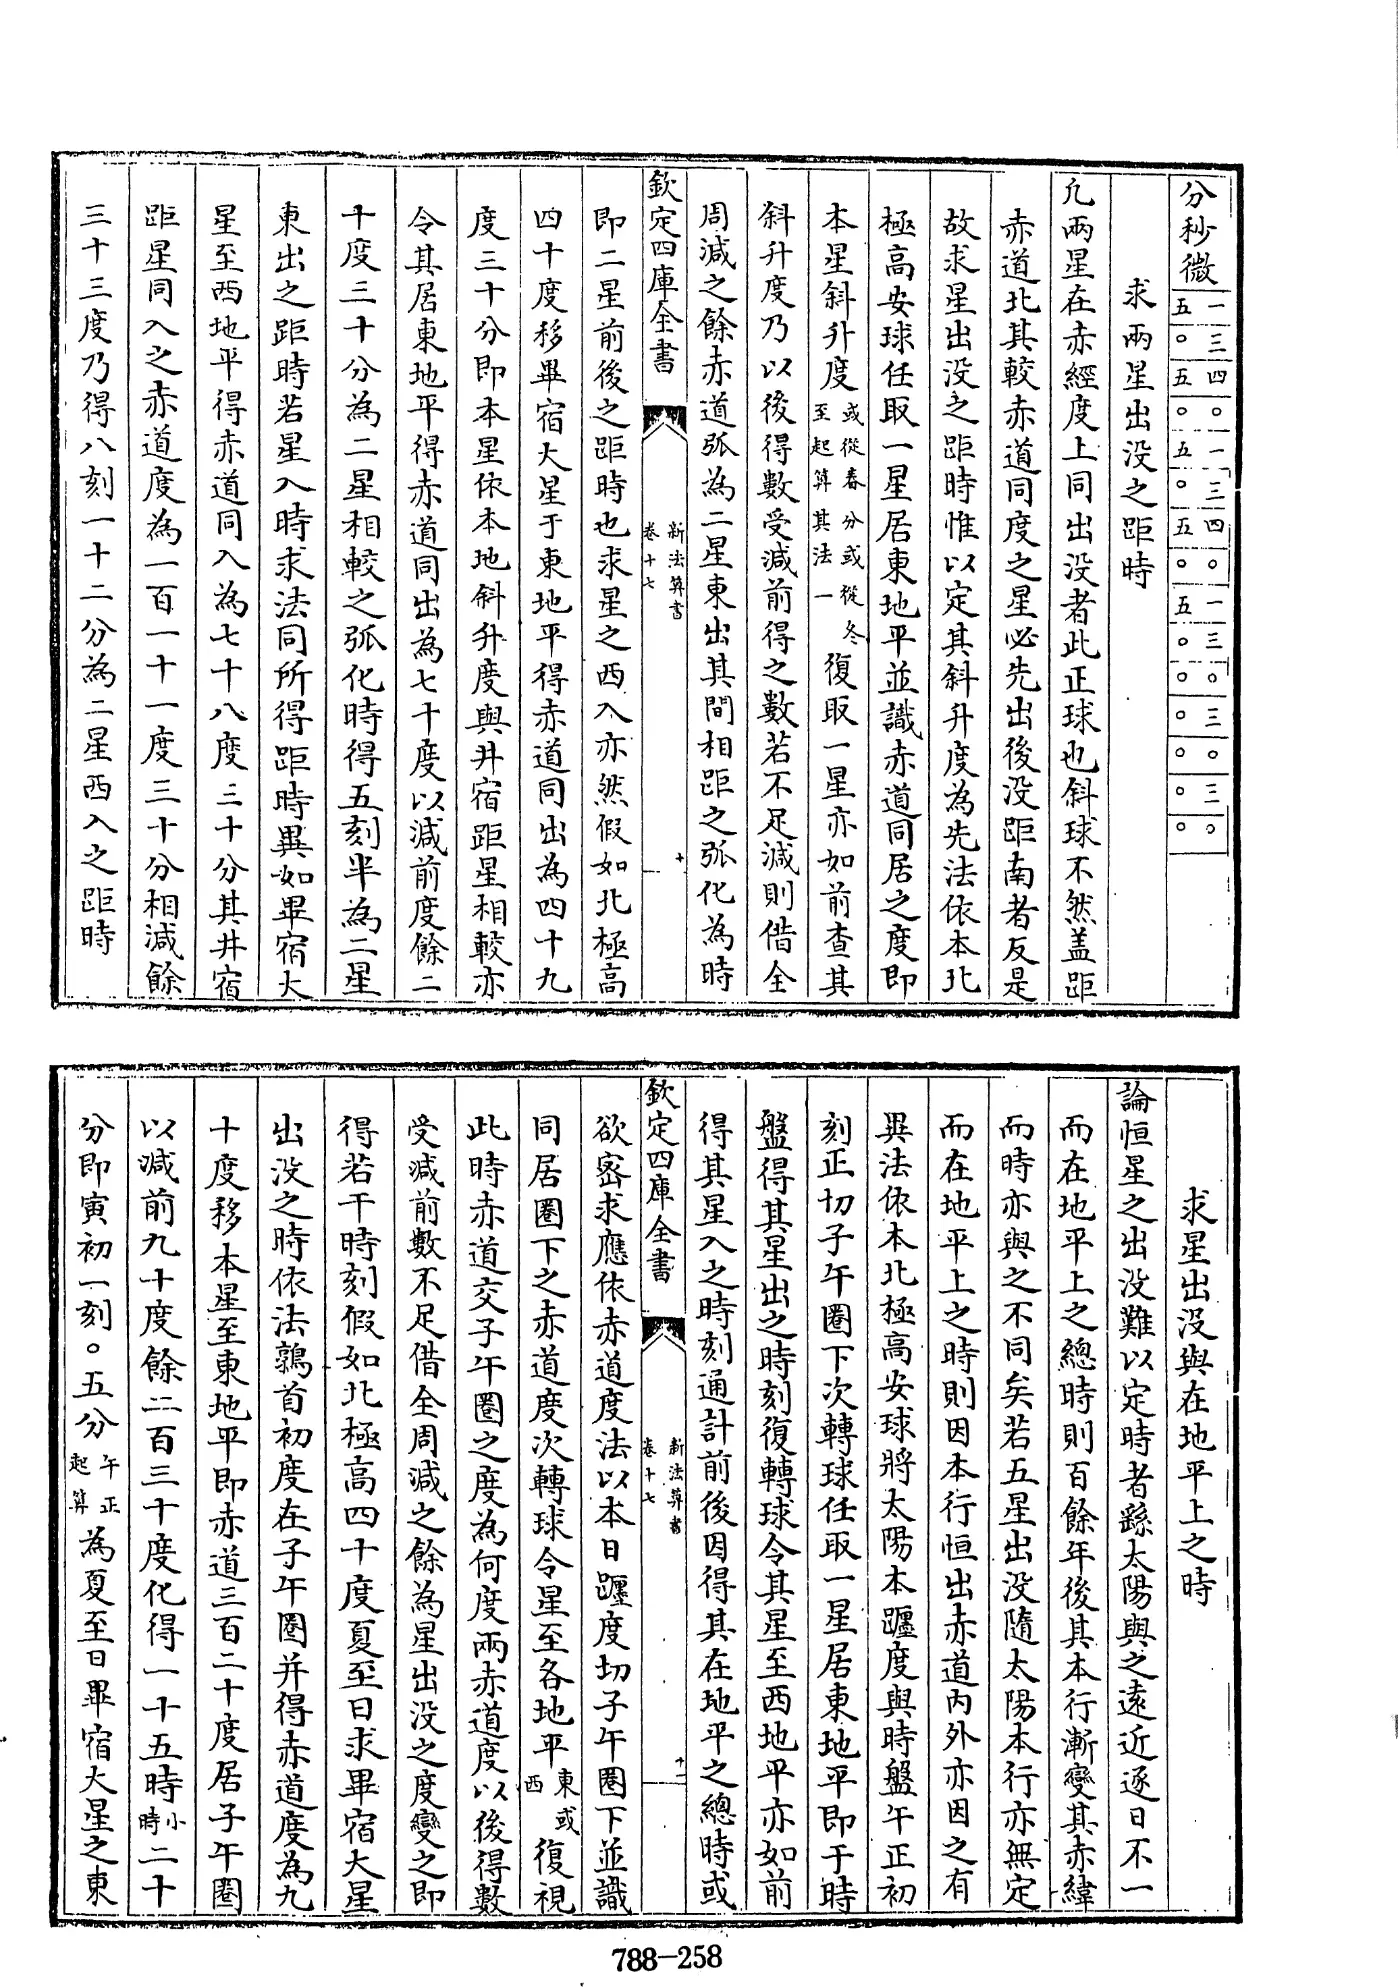 分秒微
一五
三〇
四五
〇〇
一五
三〇
四五
〇〇
一五
三〇
〇〇
三〇
〇〇
三〇
〇〇
求兩星出没之距時
凡兩星在赤經度上同出没者此正球也斜球不然盖距
赤道北其較赤道同度之星必先出後没距南者反是
故求星出没之距時惟以定其斜升度為先法依本北
極高安球任取一星居東地平並識赤道同居之度即
本星斜升度或從春分或從冬至起算其法一復取一星亦如前查其
斜升度乃以後得數受減前得之數若不足減則借全
周減之餘赤道弧為二星東出其間相距之弧化為時
欽定四庫全書
新法算書
卷十七
十一
即二星前後之距時也求星之西入亦然假如北極高
四十度移畢宿大星于東地平得赤道同出為四十九
度三十分即本星依本地斜升度與井宿距星相較亦
令其居東地平得赤道同出為七十度以減前度餘二
十度三十分為二星相較之弧化時得五刻半為二星
東出之距時若星入時求法同所得距時異如畢宿大
星至西地平得赤道同入為七十八度三十分其井宿
距星同入之赤道度為一百一十一度三十分相減餘
三十三度乃得八刻一十二分為二星西入之距時
求星出没與在地平上之時
論恒星之出没難以定時者繇太陽與之遠近逐日不一
而在地平上之總時則百餘年後其本行漸變其赤緯
而時亦與之不同矣若五星出没隨太陽本行亦無定
而在地平上之時則因本行恒出赤道内外亦因之有
異法依本北極高安球將太陽本躔度與時盤午正初
刻正切子午圈下次轉球任取一星居東地平即于時
盤得其星出之時刻復轉球令其星至西地平亦如前
得其星入之時刻通計前後因得其在地平之總時或
欽定四庫全書
新法算書
卷十七
十二
欲密求應依赤道度法以本日躔度切子午圈下並識
同居圈下之赤道度次轉球令星至各地平東或西復視
此時赤道交子午圈之度為何度兩赤道度以後得數
受減前數不足借全周減之餘為星出没之度變之即
得若干時刻假如北極高四十度夏至日求畢宿大星
出没之時依法鶉首初度在子午圈并得赤道度為九
十度移本星至東地平即赤道三百二十度居子午圈
以減前九十度餘二百三十度化得一十五時小時二十
分即寅初一刻〇五分午正起算為夏至日畢宿大星之東
788-258